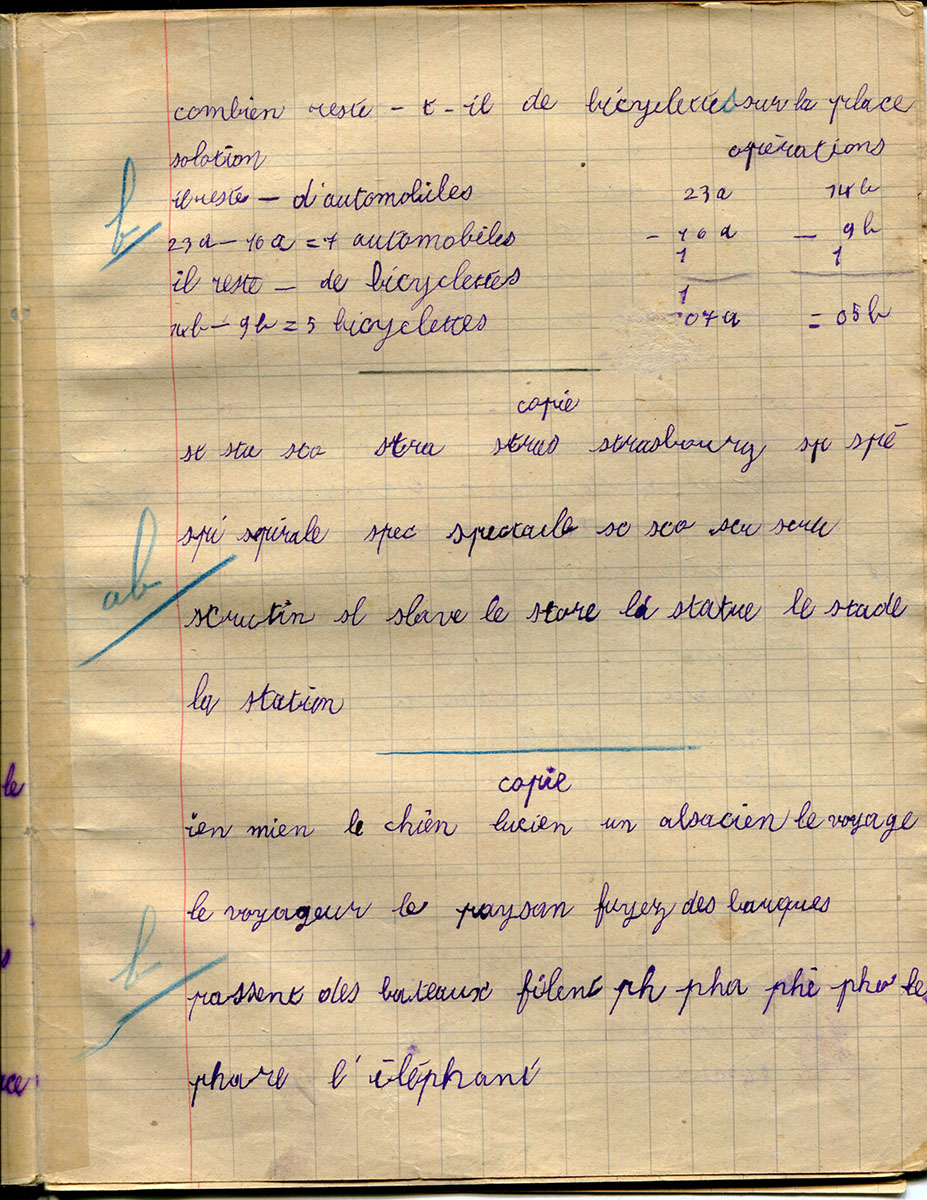 combien reste - t - il de bicyclettes sur la place
solotion opérations
il reste - d'automobiles 23a 14b
23a - 16a = 7 automobiles - 16a - 9b
il reste - de bicyclettes 1 1
14b - 9b = 5 bicyclettes 1 07a = 05b
b
copie
st sta sto stra stras strasbourg sp spé
spi spirale spec spectacle sc sco scu scru
scructin sl slave le store la statue le stade
ab
la station
copie
ien mien le chien lucien un alsacien le voyage
le voyageur le paysan fuyez des barques
passent des bateaux filent ph pha phé pho le
b
phare l'éléphant
le